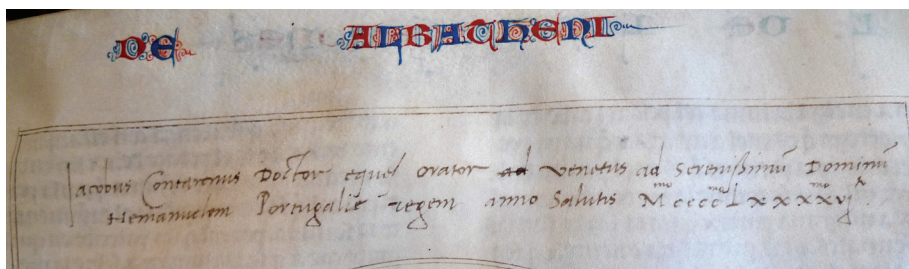 DE ALBATHENI
Jacobus Contarenus Doctor eques orator ad venetus ad Serenissimū Dominū
Hemanuelem Portugalie regem anno Salutis Mᵐᵒccccᵐᵒlxxxxᵐᵒvjᵗᵒ